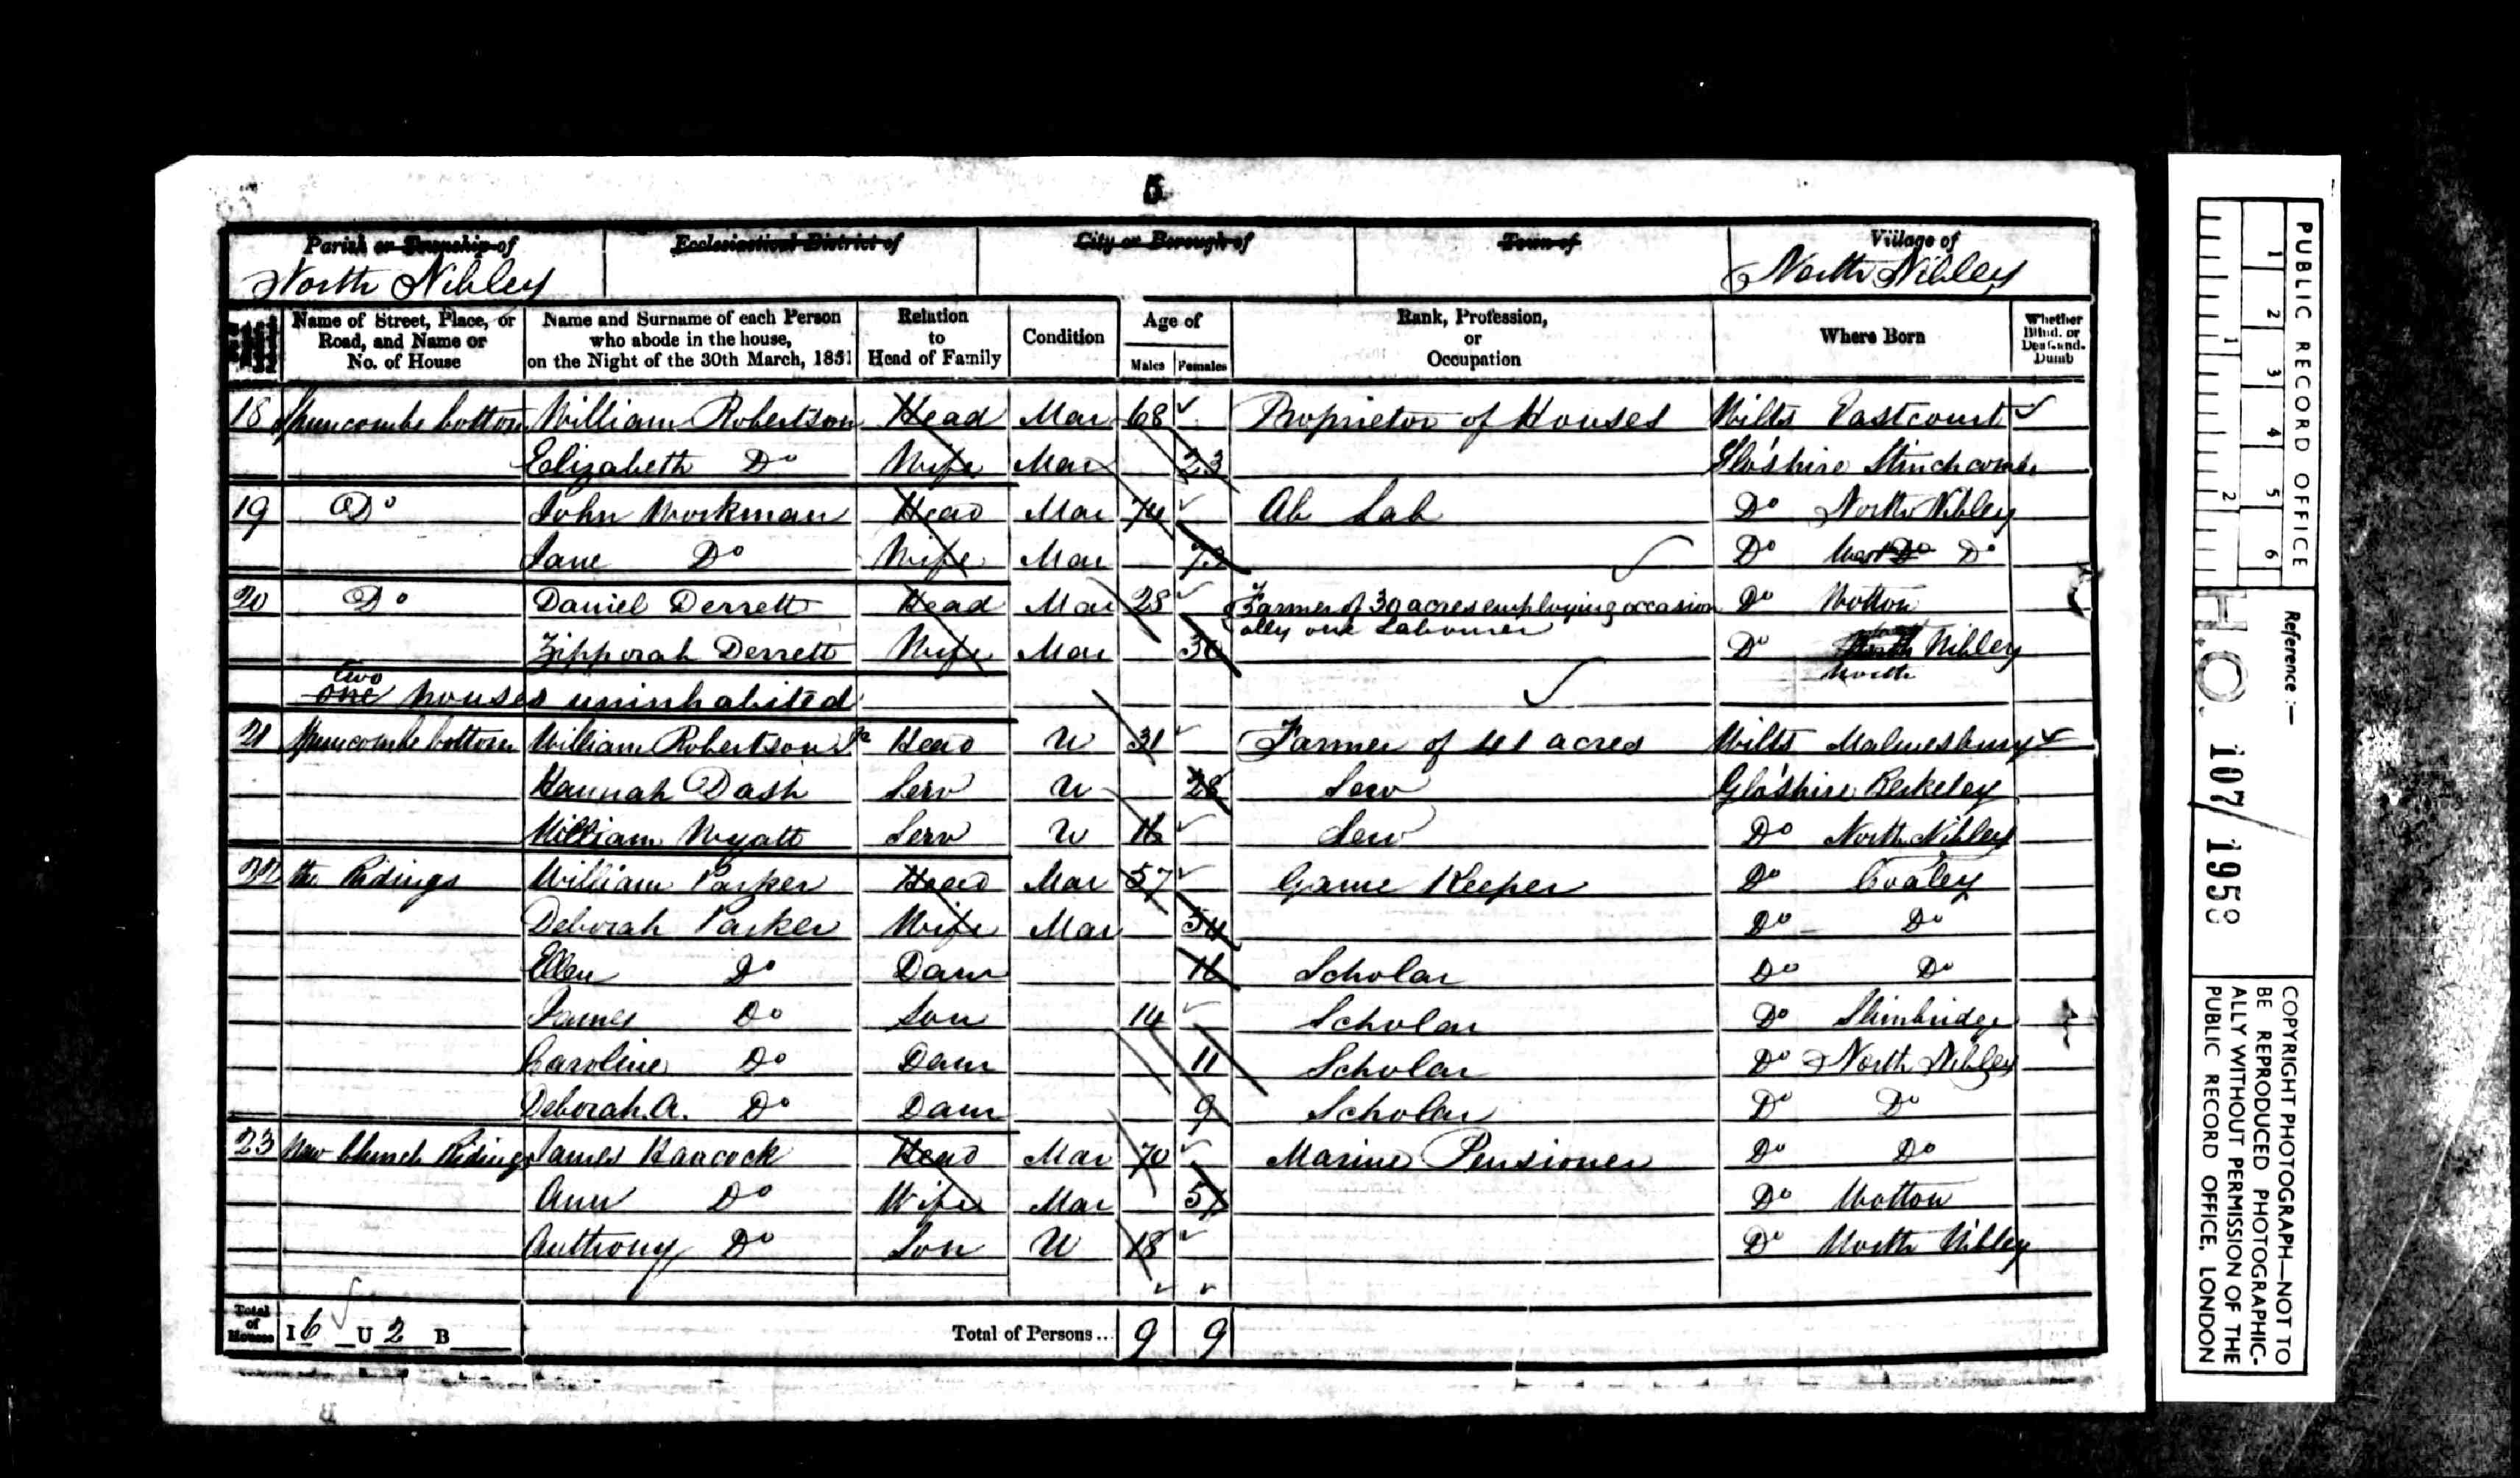 5
Parish or Township of Ecclesiastical District of City or Borough of Town of Village of
North Nibley North Nibley
Name of Street, Place, or Road, and Name or No. of House
Name and Surname of each Person who abode in the house, on the Night of the 30th March, 1851
Relation to Head of Family
Condition
Age of
Males Females
Rank, Profession, or Occupation
Where Born
Whether Blind, or Deaf-and-Dumb
18 bottom William Robertson Head Mar 68 Proprietor of Houses Wilts Eastcourt
Elizabeth Do Wife Mar 23 Glo'shire Stinchcombe
19 Do John Workman Head Mar 74 Ab Lab Do North Nibley
Jane Do Wife Mar 73 Do Do
20 Do Daniel Derrett Head Mar 28 Farmer of 30 acres employing occasion Do Wotton
ally one Labourer
Zipporah Derrett Wife Mar 30 Do North Nibley
two
one houses uninhabited
21 bottom William Robertson Jr Head U 31 Farmer of 41 acres Wilts Malmesbury
Hannah Dash Serv U 28 Serv Glo'shire Berkeley
William Wyatt Serv U 16 Serv Do North Nibley
22 the Ridings William Parker Head Mar 57 Game Keeper Do Coaley
Deborah Parker Wife Mar 54 Do Do
Ellen Do Daur 16 Scholar Do Do
James Do Son 14 Scholar Do Slimbridge
Caroline Do Daur 11 Scholar Do North Nibley
Deborah A. Do Daur 9 Scholar Do Do
23 Church Ridings James Hancock Head Mar 70 Marine Pensioner Do Do
Ann Do Wife Mar 57 Do Wotton
Anthony Do Son U 18 Do North Nibley
Total of Houses I 6 U 2 B Total of Persons... 9 9
PUBLIC RECORD OFFICE
1 2 3 4 5 6
1 2
Reference :—
H.O. 107/1958
COPYRIGHT PHOTOGRAPH—NOT TO
BE REPRODUCED PHOTOGRAPHIC-
ALLY WITHOUT PERMISSION OF THE
PUBLIC RECORD OFFICE, LONDON